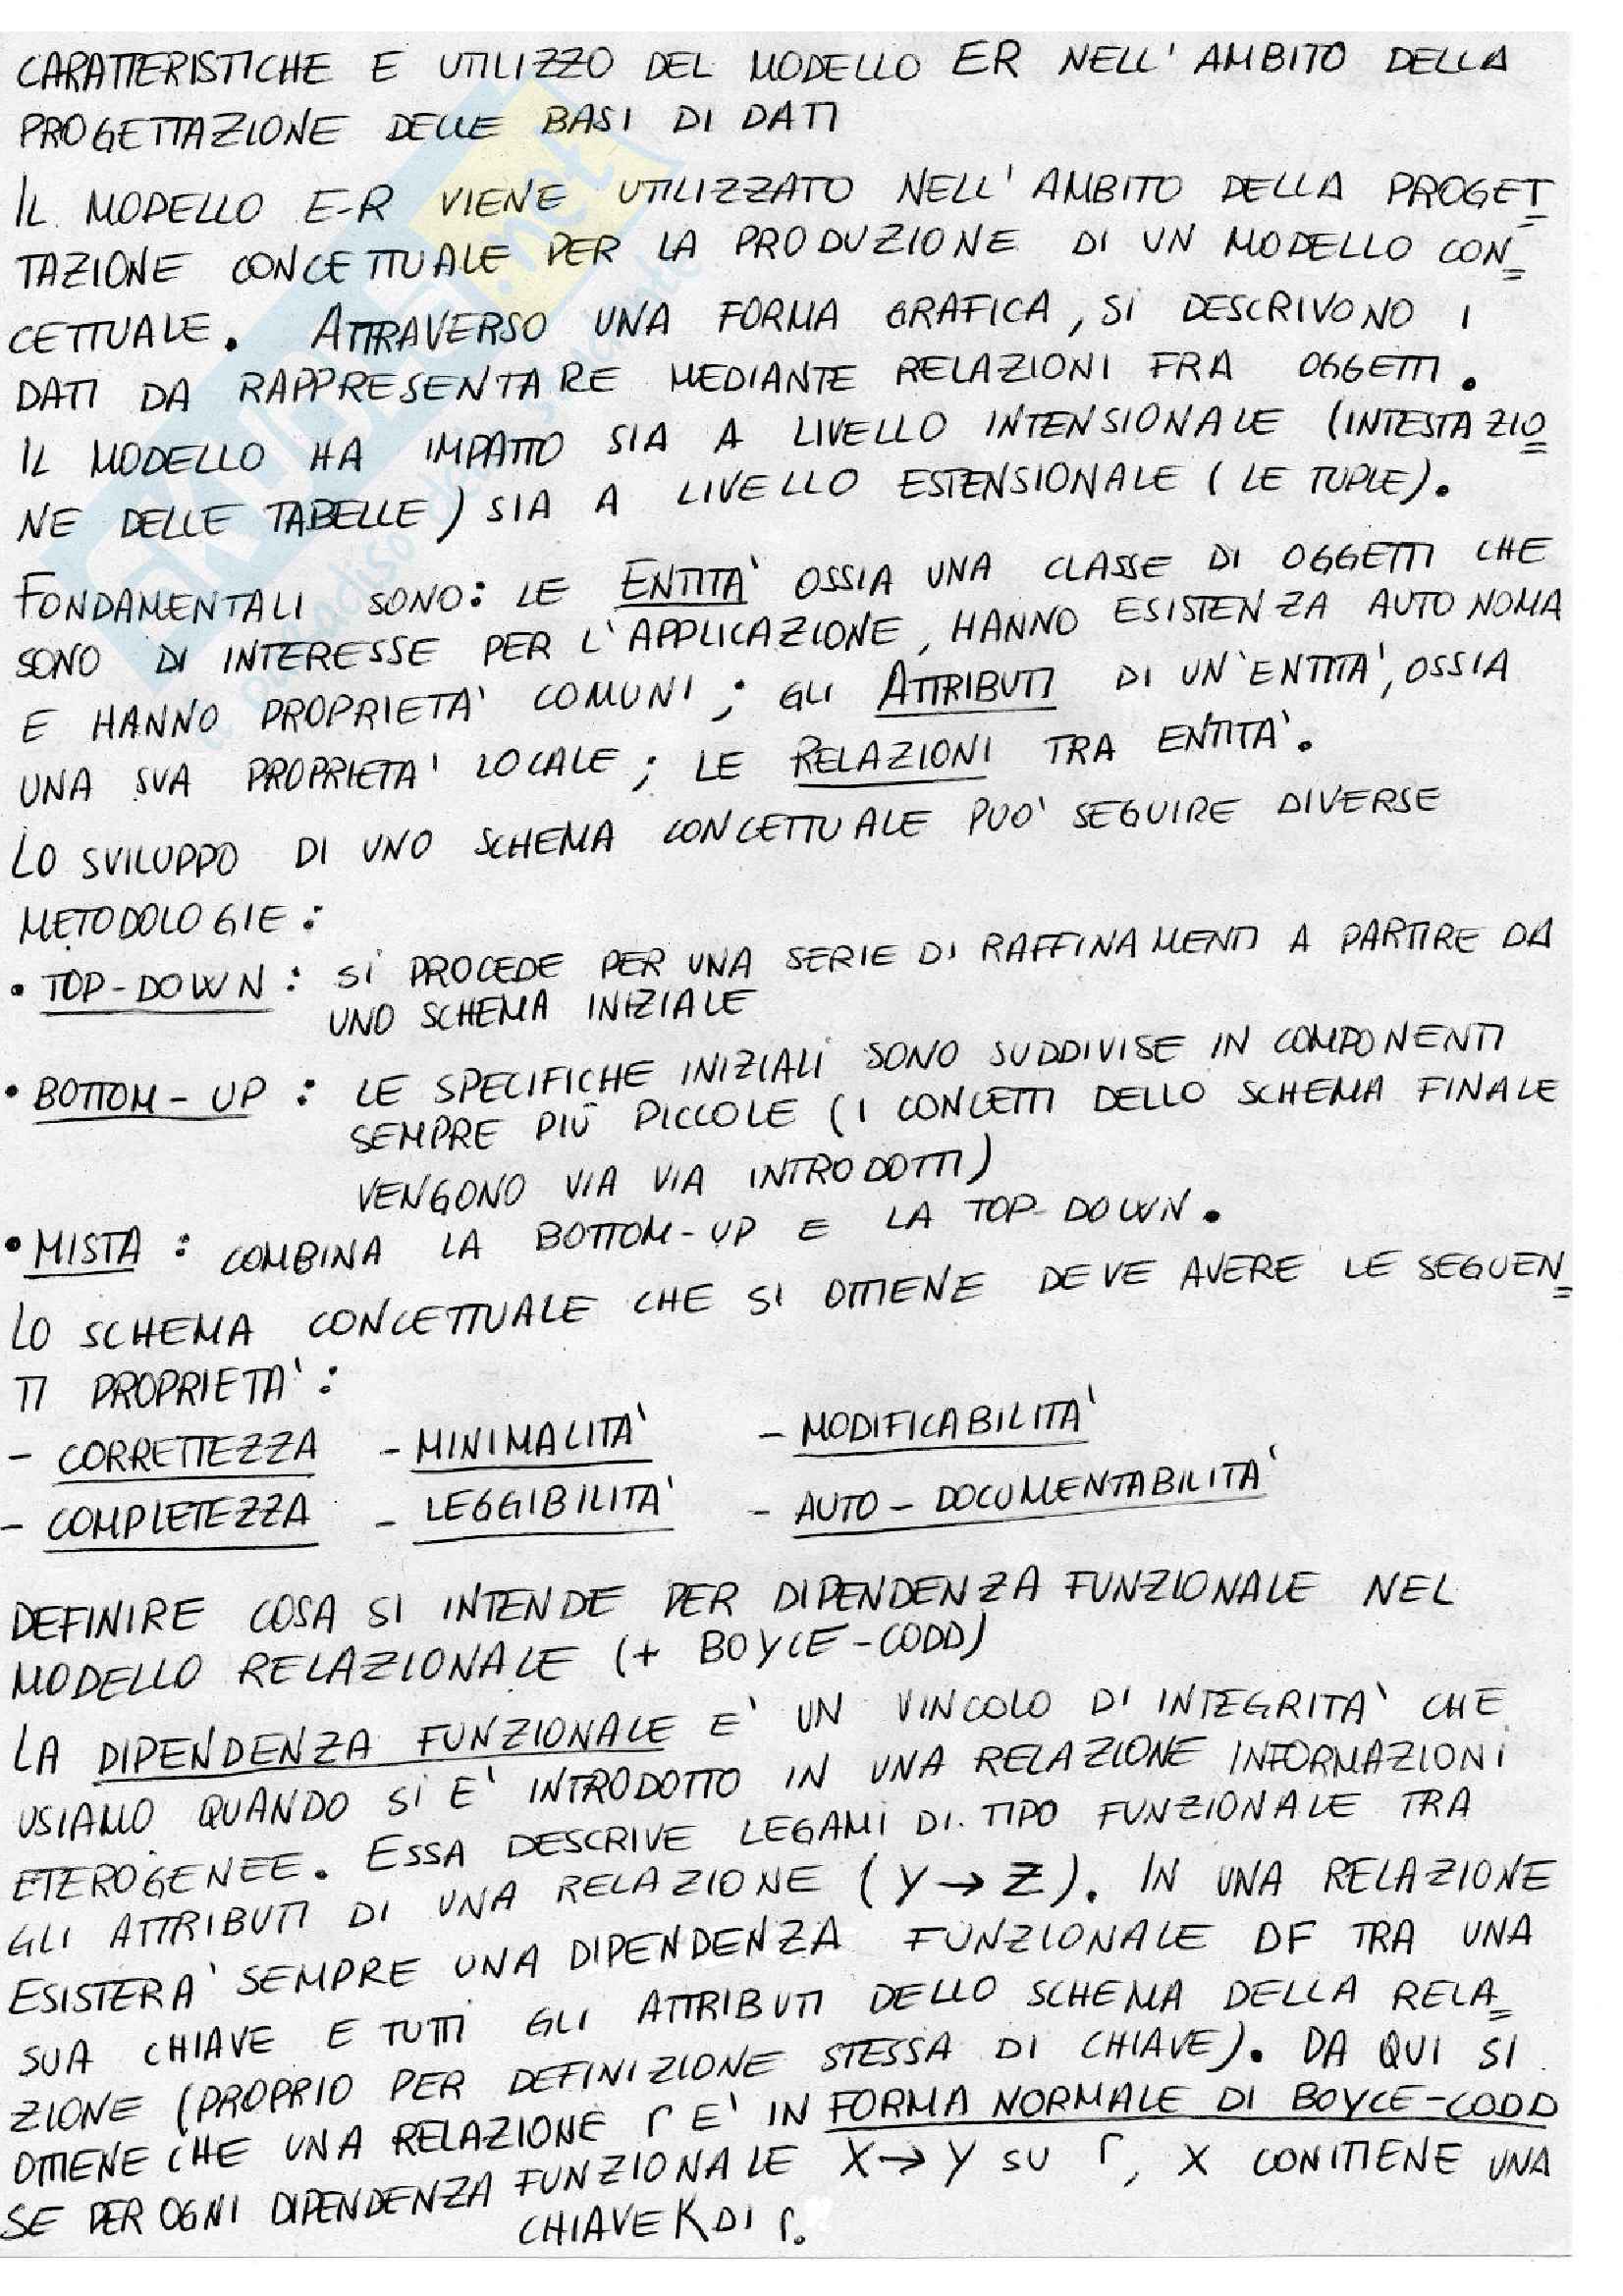 CARATTERISTICHE E UTILIZZO DEL MODELLO ER NELL'AMBITO DELLA
PROGETTAZIONE DELLE BASI DI DATI
IL MODELLO E-R VIENE UTILIZZATO NELL'AMBITO DELLA PROGET
TAZIONE CONCETTUALE PER LA PRODUZIONE DI UN MODELLO CON
CETTUALE. ATTRAVERSO UNA FORMA GRAFICA, SI DESCRIVONO I
DATI DA RAPPRESENTARE MEDIANTE RELAZIONI FRA OGGETTI.
IL MODELLO HA IMPATTO SIA A LIVELLO INTENSIONALE (INTESTAZIO
NE DELLE TABELLE) SIA A LIVELLO ESTENSIONALE (LE TUPLE).
FONDAMENTALI SONO: LE ENTITA' OSSIA UNA CLASSE DI OGGETTI CHE
SONO DI INTERESSE PER L'APPLICAZIONE, HANNO ESISTENZA AUTONOMA
E HANNO PROPRIETA' COMUNI; GLI ATTRIBUTI DI UN'ENTITA', OSSIA
UNA SUA PROPRIETA' LOCALE; LE RELAZIONI TRA ENTITA'.
LO SVILUPPO DI UNO SCHEMA CONCETTUALE PUO' SEGUIRE DIVERSE
METODOLOGIE:
• TOP-DOWN: SI PROCEDE PER UNA SERIE DI RAFFINAMENTI A PARTIRE DA
UNO SCHEMA INIZIALE
• BOTTOM-UP: LE SPECIFICHE INIZIALI SONO SUDDIVISE IN COMPONENTI
SEMPRE PIÙ PICCOLE (I CONCETTI DELLO SCHEMA FINALE
VENGONO VIA VIA INTRODOTTI)
• MISTA: COMBINA LA BOTTOM-UP E LA TOP-DOWN.
LO SCHEMA CONCETTUALE CHE SI OTTIENE DEVE AVERE LE SEGUEN
TI PROPRIETA':
- CORRETTEZZA - MINIMALITA' - MODIFICABILITA'
- COMPLETEZZA - LEGGIBILITA' - AUTO-DOCUMENTABILITA'
DEFINIRE COSA SI INTENDE PER DIPENDENZA FUNZIONALE NEL
MODELLO RELAZIONALE (+ BOYCE-CODD)
LA DIPENDENZA FUNZIONALE E' UN VINCOLO DI INTEGRITA' CHE
USIAMO QUANDO SI E' INTRODOTTO IN UNA RELAZIONE INFORMAZIONI
ETEROGENEE. ESSA DESCRIVE LEGAMI DI TIPO FUNZIONALE TRA
GLI ATTRIBUTI DI UNA RELAZIONE (Y → Z). IN UNA RELAZIONE
ESISTERA' SEMPRE UNA DIPENDENZA FUNZIONALE DF TRA UNA
SUA CHIAVE E TUTTI GLI ATTRIBUTI DELLO SCHEMA DELLA RELA
ZIONE (PROPRIO PER DEFINIZIONE STESSA DI CHIAVE). DA QUI SI
OTTIENE CHE UNA RELAZIONE r E' IN FORMA NORMALE DI BOYCE-CODD
SE PER OGNI DIPENDENZA FUNZIONALE X → Y SU r, X CONTIENE UNA
CHIAVE K DI r.